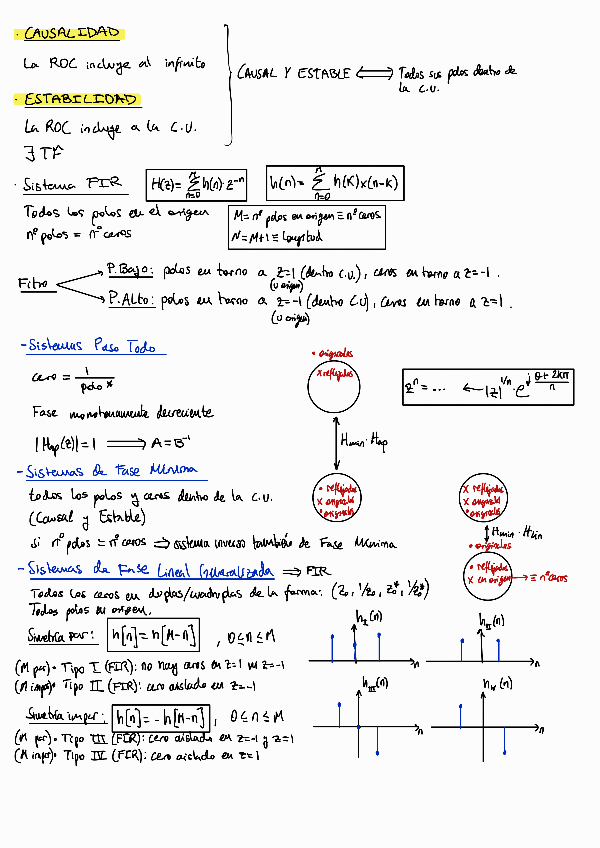 · CAUSALIDAD
La ROC incluye al infinito
CAUSAL Y ESTABLE ⟺ Todos sus polos dentro de la C.U.
· ESTABILIDAD
La ROC incluye a la C.U.
∃ TF
· Sistema FIR
H(z) = Σ_{n=0}^{n} h(n)·z^{-n}
h(n) = Σ_{n=0}^{n} h(k)x(n-k)
Todos los polos en el origen
nº polos = nº ceros
M = nº polos en origen ≡ nº ceros
N = M+1 ≡ Longitud
Filtro
P.Bajo: polos en torno a z=1 (dentro C.U.), ceros en torno a z=-1.
(u origen)
P.Alto: polos en torno a z=-1 (dentro C.U), ceros en torno a z=1.
(u origen)
- Sistemas Paso Todo
cero = 1 / polo*
Fase monotonamente decreciente
|Hap(z)| = 1 ⟹ A = B^{-1}
• originales
x reflejados
z^n = ... ← |z|^{1/n} · e^{j (θ+2kπ)/n}
Hmin · Hap
- Sistemas de Fase Mínima
todos los polos y ceros dentro de la C.U.
(Causal y Estable)
si nº polos = nº ceros ⟹ sistema inverso también de Fase Mínima
• reflejados
x originales
• originales
• reflejados
x originales
• originales
Hmin · Hlin
• originales
• reflejados
x en origen → ≡ nº ceros
- Sistemas de Fase Lineal Generalizada ⟹ FIR
Todos los ceros en duplas/cuadruplas de la forma: (z₀, 1/z₀, z₀*, 1/z₀*)
Todos polos en origen.
Simetría par: h[n] = h[M-n] , 0≤n≤M
(M par)• Tipo I (FIR): no hay ceros en z=1 ni z=-1
(M impar)• Tipo II (FIR): cero aislado en z=-1
Simetría impar: h[n] = -h[M-n] , 0≤n≤M
(M par)• Tipo III (FIR): cero aislado en z=-1 y z=1
(M impar)• Tipo IV (FIR): cero aislado en z=1
h_I(n)
n
h_II(n)
n
h_III(n)
n
h_IV(n)
n